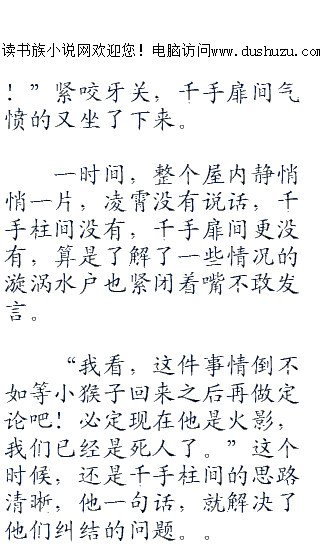 读书族小说网欢迎您！电脑访问www.dushuzu.com
！”紧咬牙关，千手扉间气
愤的又坐了下来。
一时间，整个屋内静悄
悄一片，凌霄没有说话，千
手柱间没有，千手扉间更没
有，算是了解了一些情况的
漩涡水户也紧闭着嘴不敢发
言。
“我看，这件事情倒不
如等小猴子回来之后再做定
论吧！必定现在他是火影，
我们已经是死人了。”这个
时候，还是千手柱间的思路
清晰，他一句话，就解决了
他们纠结的问题。。